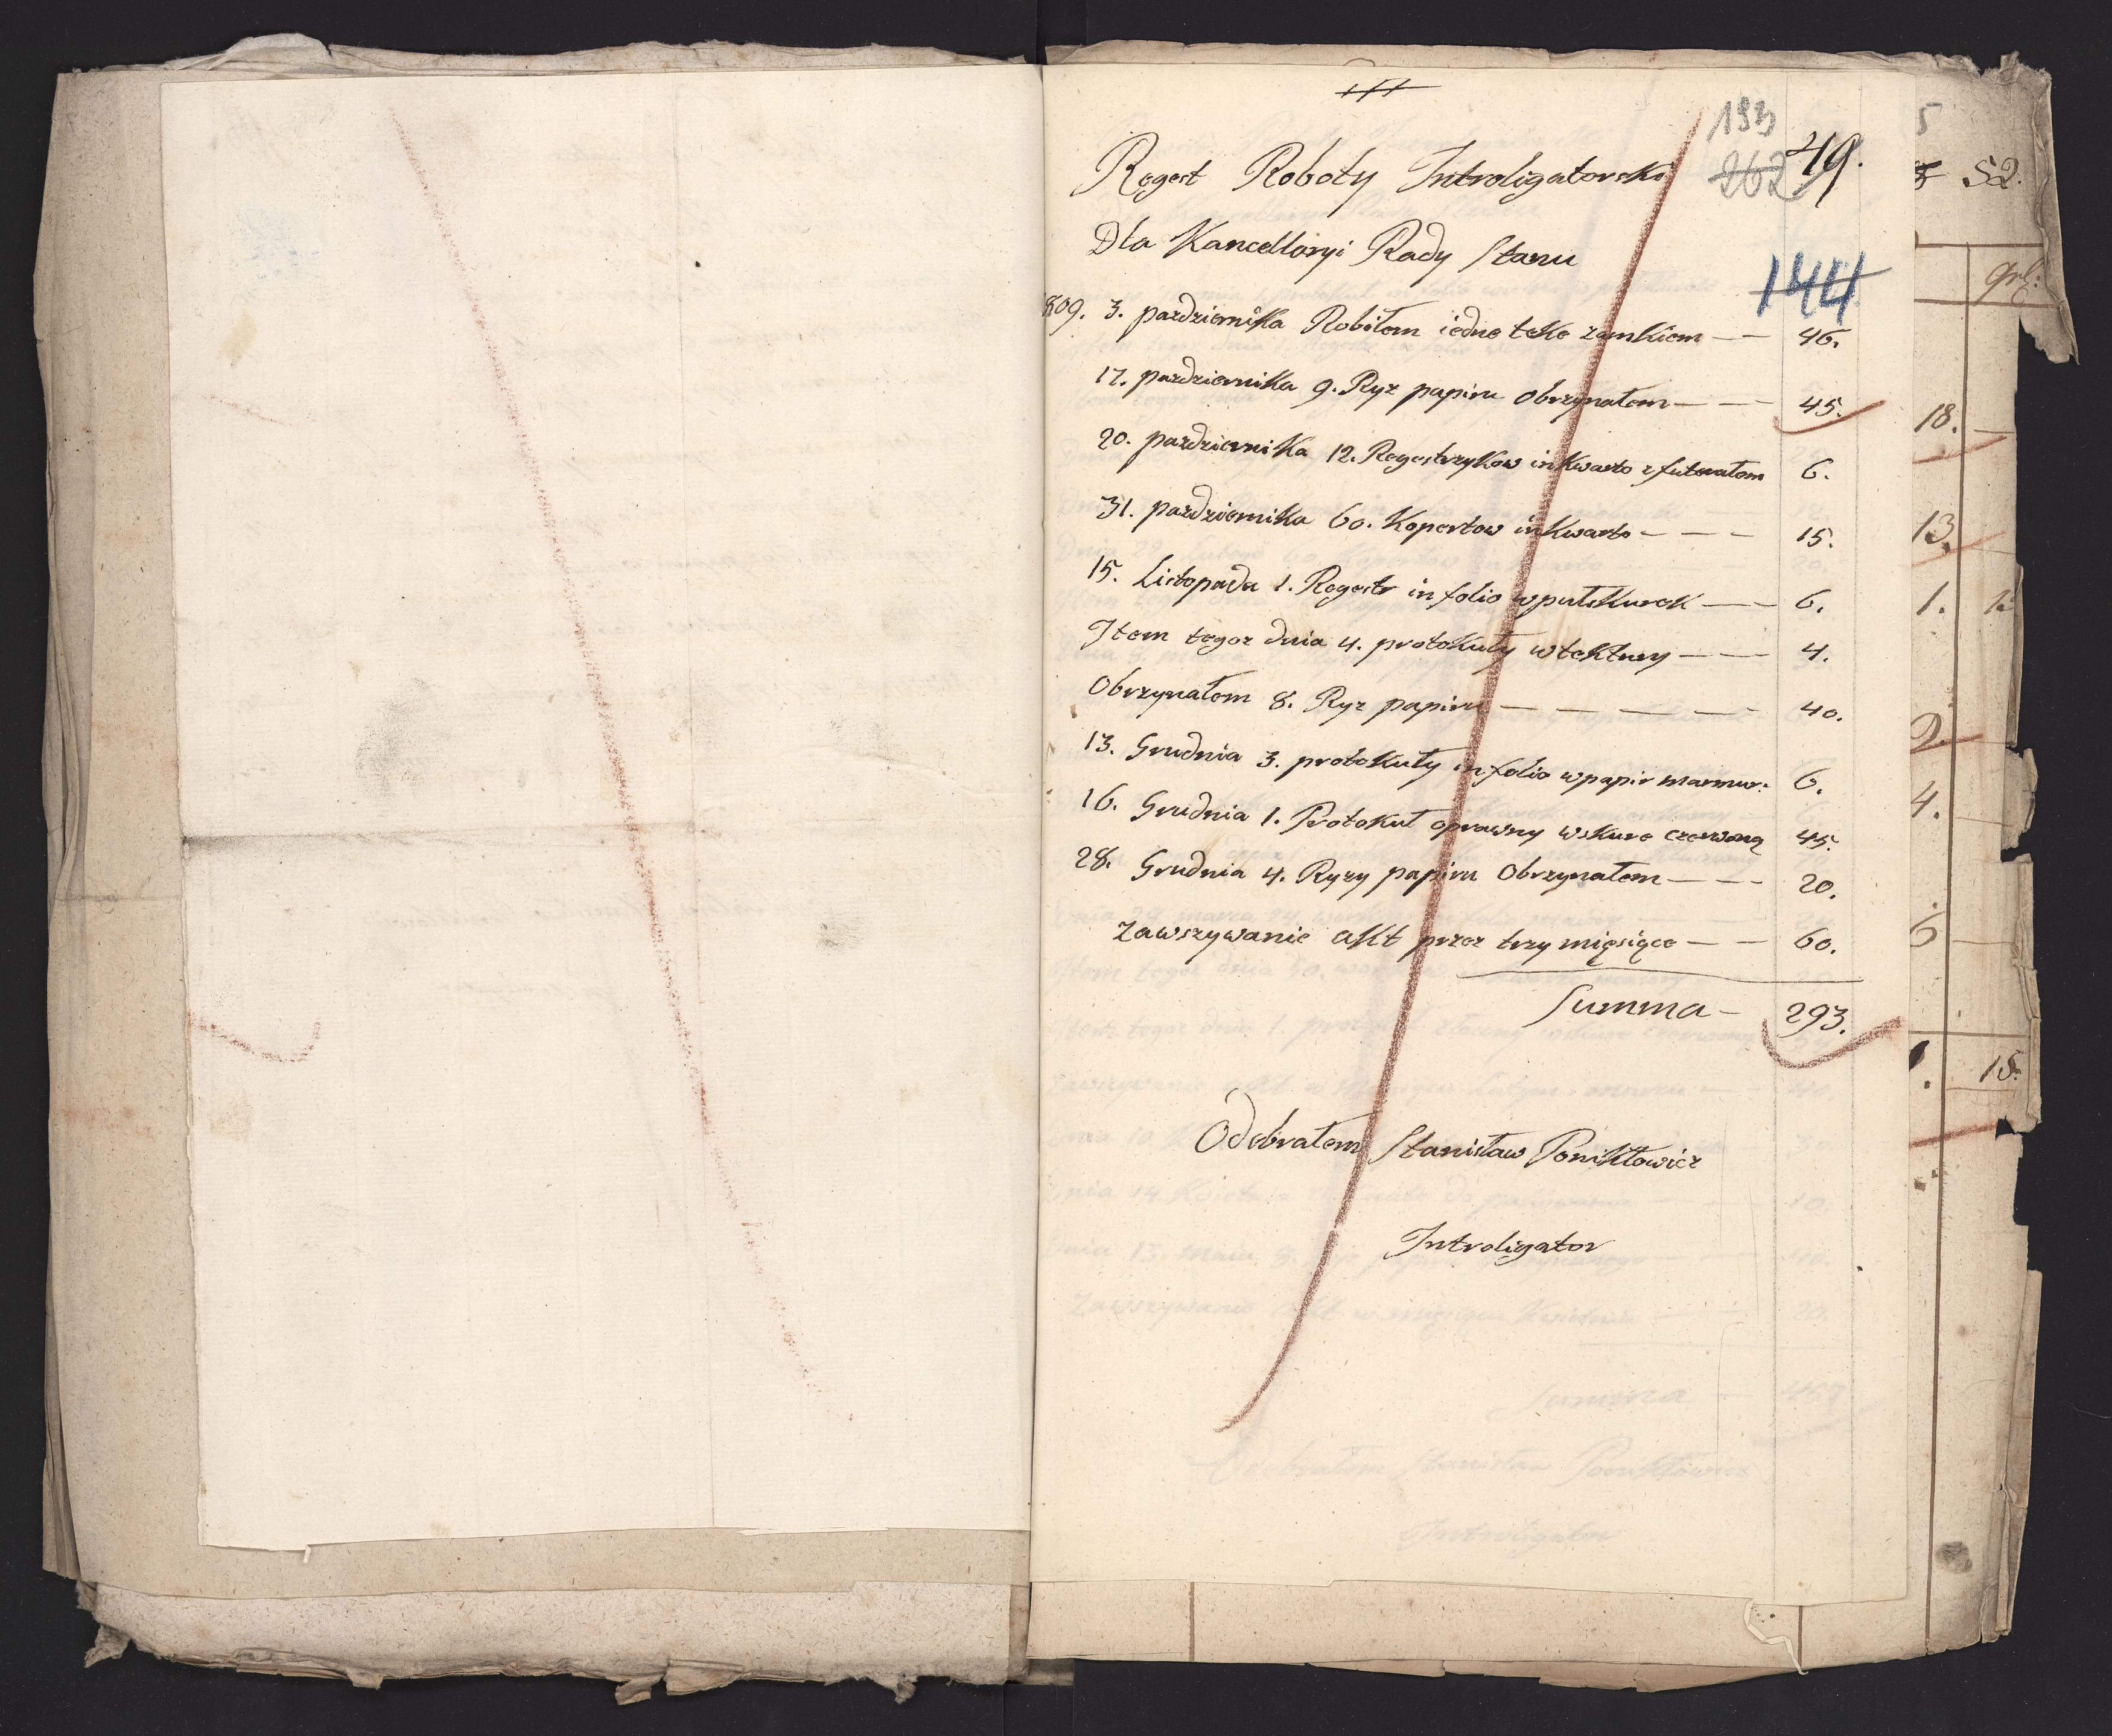 193
262 49.
Regest Roboty Introligatorski
Dla Kancellaryi Rady Stanu
144
809. 3. pazdziernika Robiłem iedne teke zamkiem — — 46.
17. pazdziernika 9. Ryz papiru obrzynałem — — 45.
20. pazdziernika 12. Regestrzykow inkwarto z futerałem 6.
31. pazdziernika 60. Kopertow inkwarto — — — 15.
15. Listopada 1. Regestr in folio wpułskurek — — 6.
Item tegoz dnia 4. protokuły wtektury — — 4.
Obrzynałem 8. Ryz papiru — — — — — 40.
13. Grudnia 3. protokuły in folio wpapir marmur: 6.
16. Grudnia 1. Protokuł oprawny wskure czerwoną 45.
28. Grudnia 4. Ryzy papiru Obrzynałem — — — 20.
Zawszywanie akt przez trzy mięsiące — — 60.
Summa — 293.
Odebrałem Stanisław Ponikłowicz
Introligator
5
52.
18.
13.
1.
2.
4.
6
15.